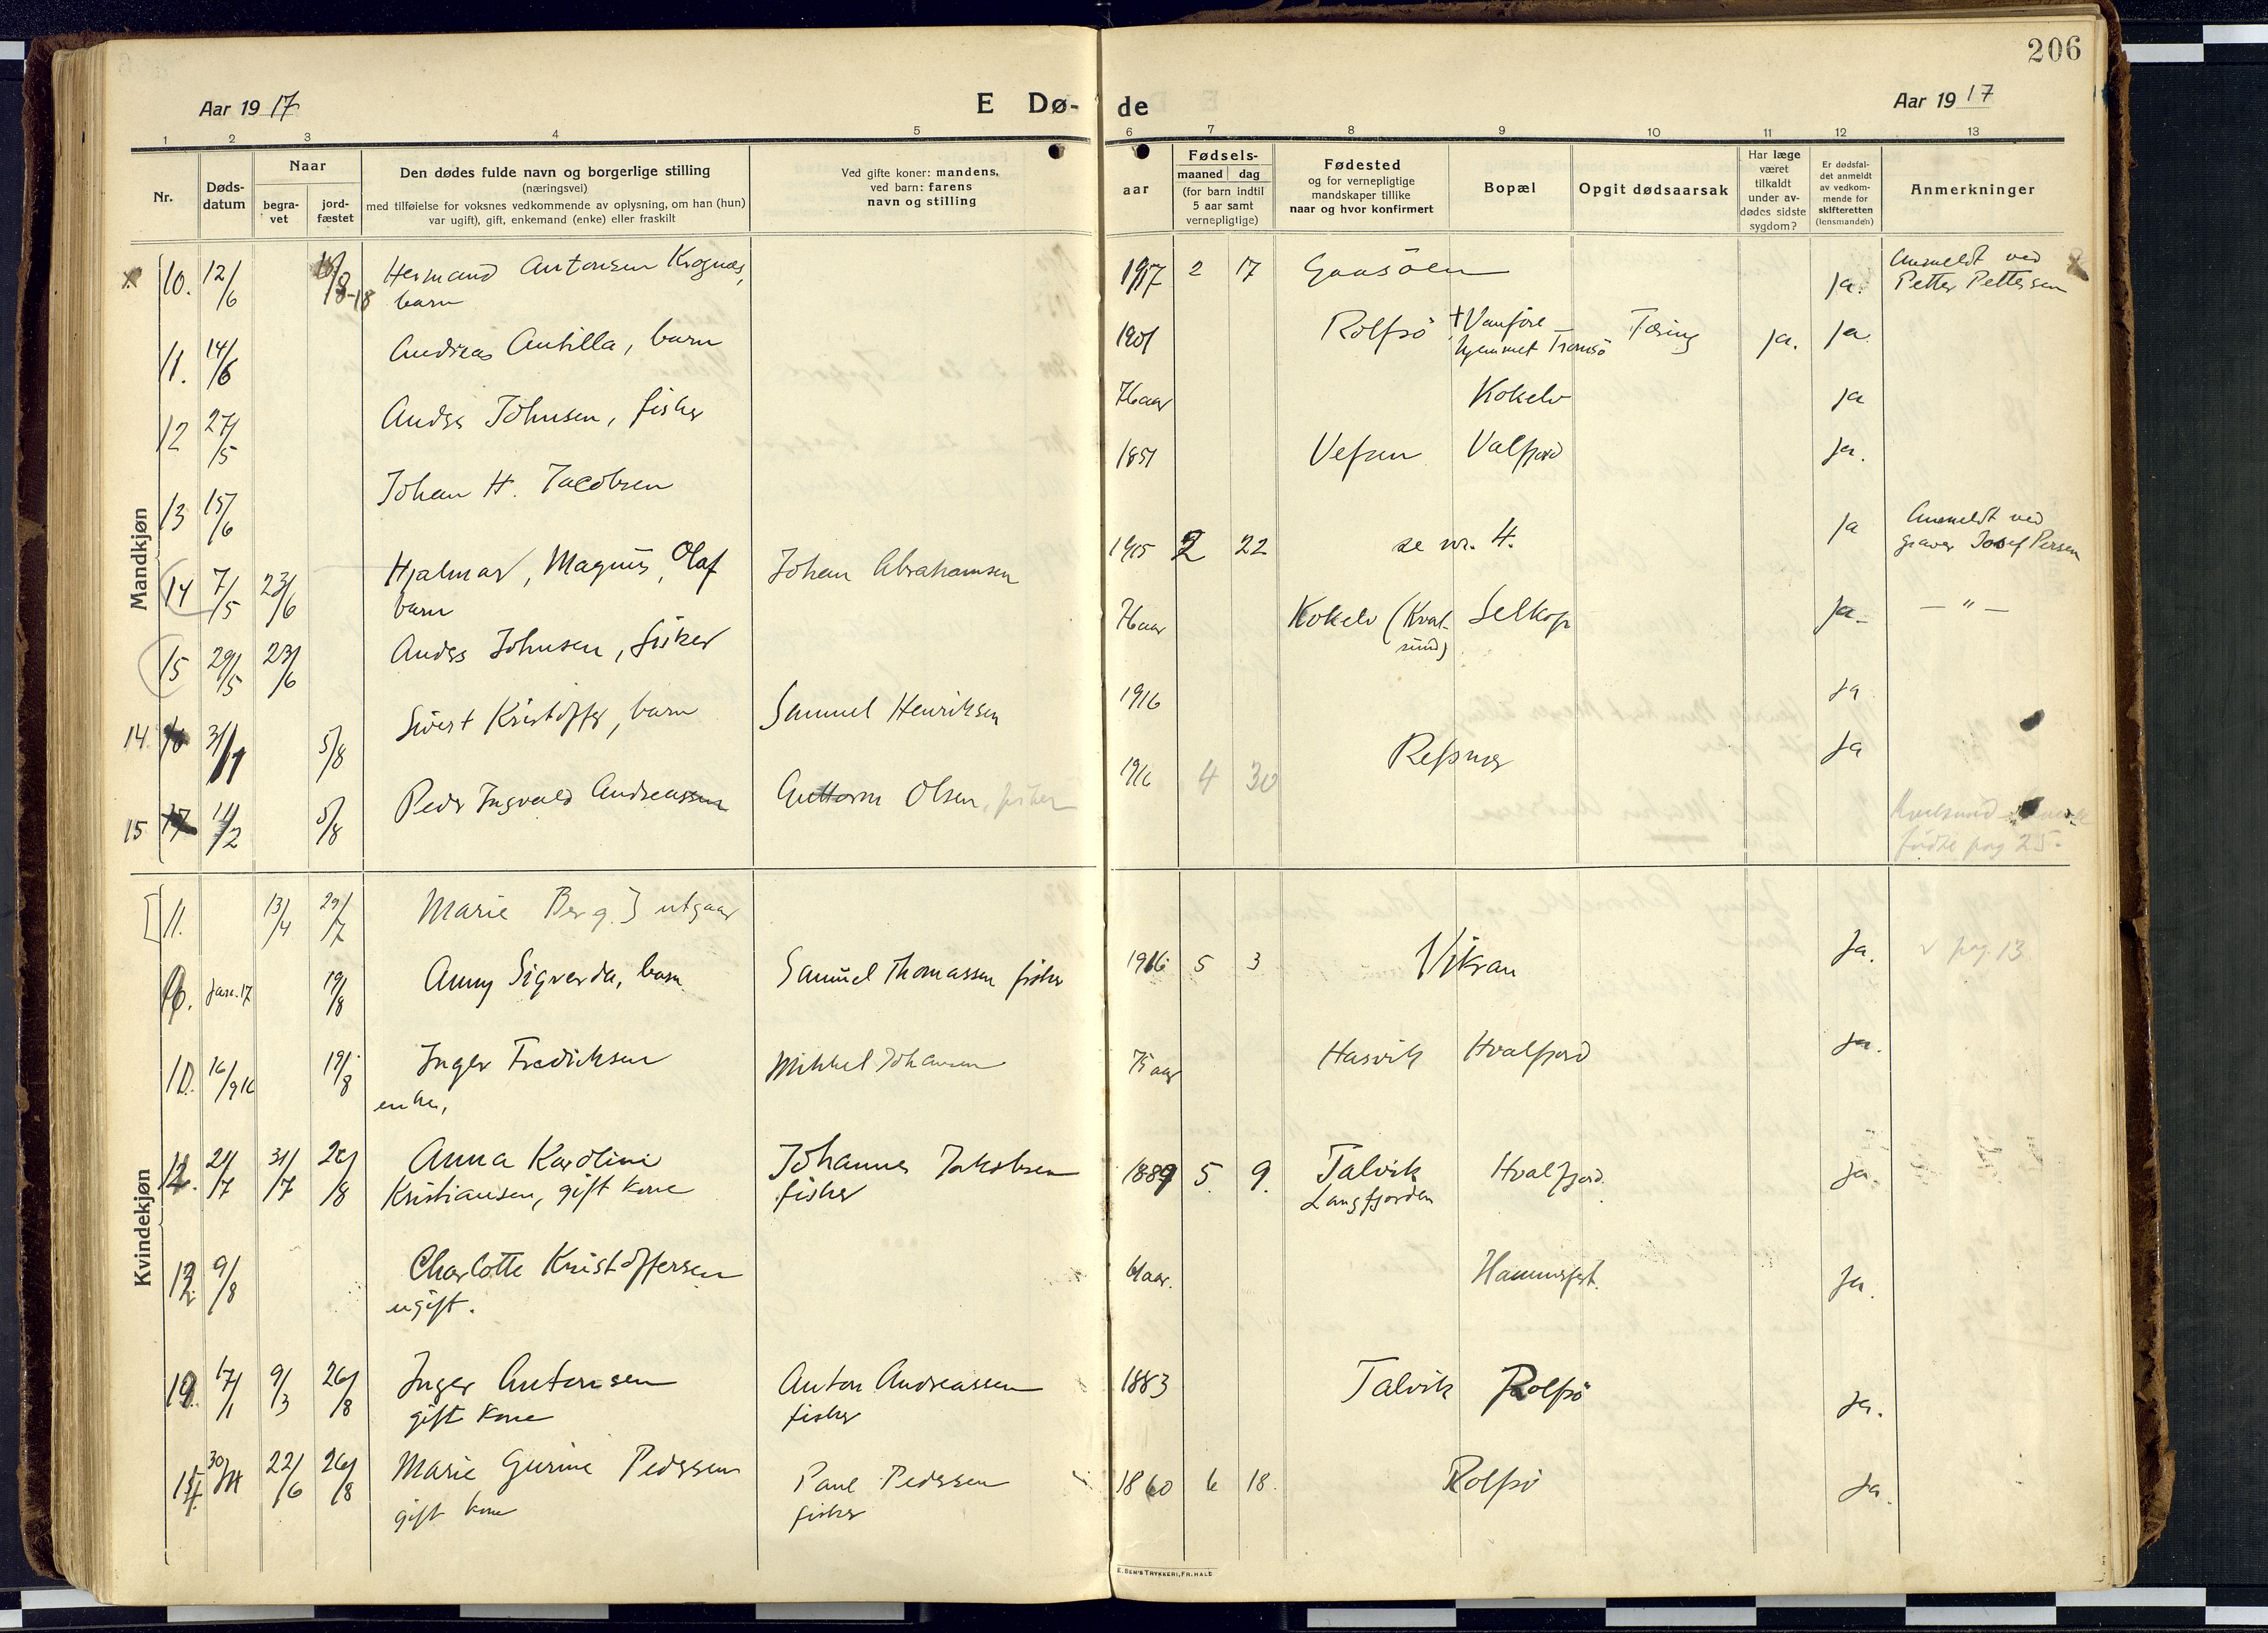 206
Aar 1917
E Dø-
de
Aar 1917
1 2 3 4 5 6 7 8 9 10 11 12 13
Nr.
Døds-
datum
Naar
begra-
vet
jord-
fæstet
Den dødes fulde navn og borgerlige stilling
(næringsvei)
med tilføielse for voksnes vedkommende av oplysning, om han (hun)
var ugift), gift, enkemand (enke) eller fraskilt
Ved gifte koner: mandens,
ved barn: farens
navn og stilling
aar
Fødsels-
maaned dag
(for barn indtil
5 aar samt
vernepligtige)
Fødested
og for vernepligtige
mandskaper tillike
naar og hvor konfirmert
Bopæl
Opgit dødsaarsak
Har læge
været
tilkaldt
under av-
dødes sidste
sygdom?
Er dødsfal-
det anmeldt
av vedkom-
mende for
skifteretten
(lensmanden)
Anmerkninger
Mandkjøn
10. 12/6 18/8-18 Hermand Antonsen Krognæs, 1917 2 17 Gaasöen ja. Anmeldt ved
barn Petter Pettersen
11. 14/6 Andreas Antilla, barn 1901 Rolfsö + Vanføre- Tæring ja. ja.
hjemmet Tromsö
12 27/5 Anders Johnsen, fisker 76 aar Kokelv ja
13 15/6 Johan H. Jacobsen 1851 Vefsen Valfjord ja.
14 7/5 23/6 Hjalmar, Magnus, Olaf Johan Abrahamsen 1915 2 22 se nr. 4. ja Anmeldt ved
barn graver Josef Persen
15 29/5 23/6 Anders Johnsen, fisker 76 aar Kokelv (Kval- Selkop ja - " -
sund)
14. 31/1 5/8 Sivert Kristoffer, barn Samuel Henriksen 1916 ja
15 11/2 5/8 Peder Ingvald Andreassen Guttorm Olsen, fisker 1916 4 30 Refsnes ja
Kvalsund
fødte pag 25.
Kvindekjøn
11. 13/4 29/7 Marie Berg } utgaar
Jan. 17 19/8 Anny Sigverda, barn Samuel Thomassen fisker 1916 5 3 Vikran Ja. v pag. 13
10. 16/9 16 19/8 Inger Fredriksen Mikkel Johansen 75 aar Hasvik Hvalfjord Ja.
enke,
12. 21/7 31/7 26/8 Anna Karoline Johannes Jakobsen 1889 5. 9. Talvik Hvalfjord. ja.
Kristiansen, gift kone fisker Langfjorden
13. 9/8 Charlotte Kristoffersen aar. Hammerfest. Ja.
ugift.
17/1 9/3 26/8 Inger Antonsen Anton Andreassen 1883 Talvik Rolfsö Ja.
gift kone fisker
30/ 22/6 26/8 Marie Gurine Pedersen Paul Pedersen 1860 6 18. Rolfsö Ja.
gift kone fisker
E. SEM'S TRYKKERI, FR. HALD